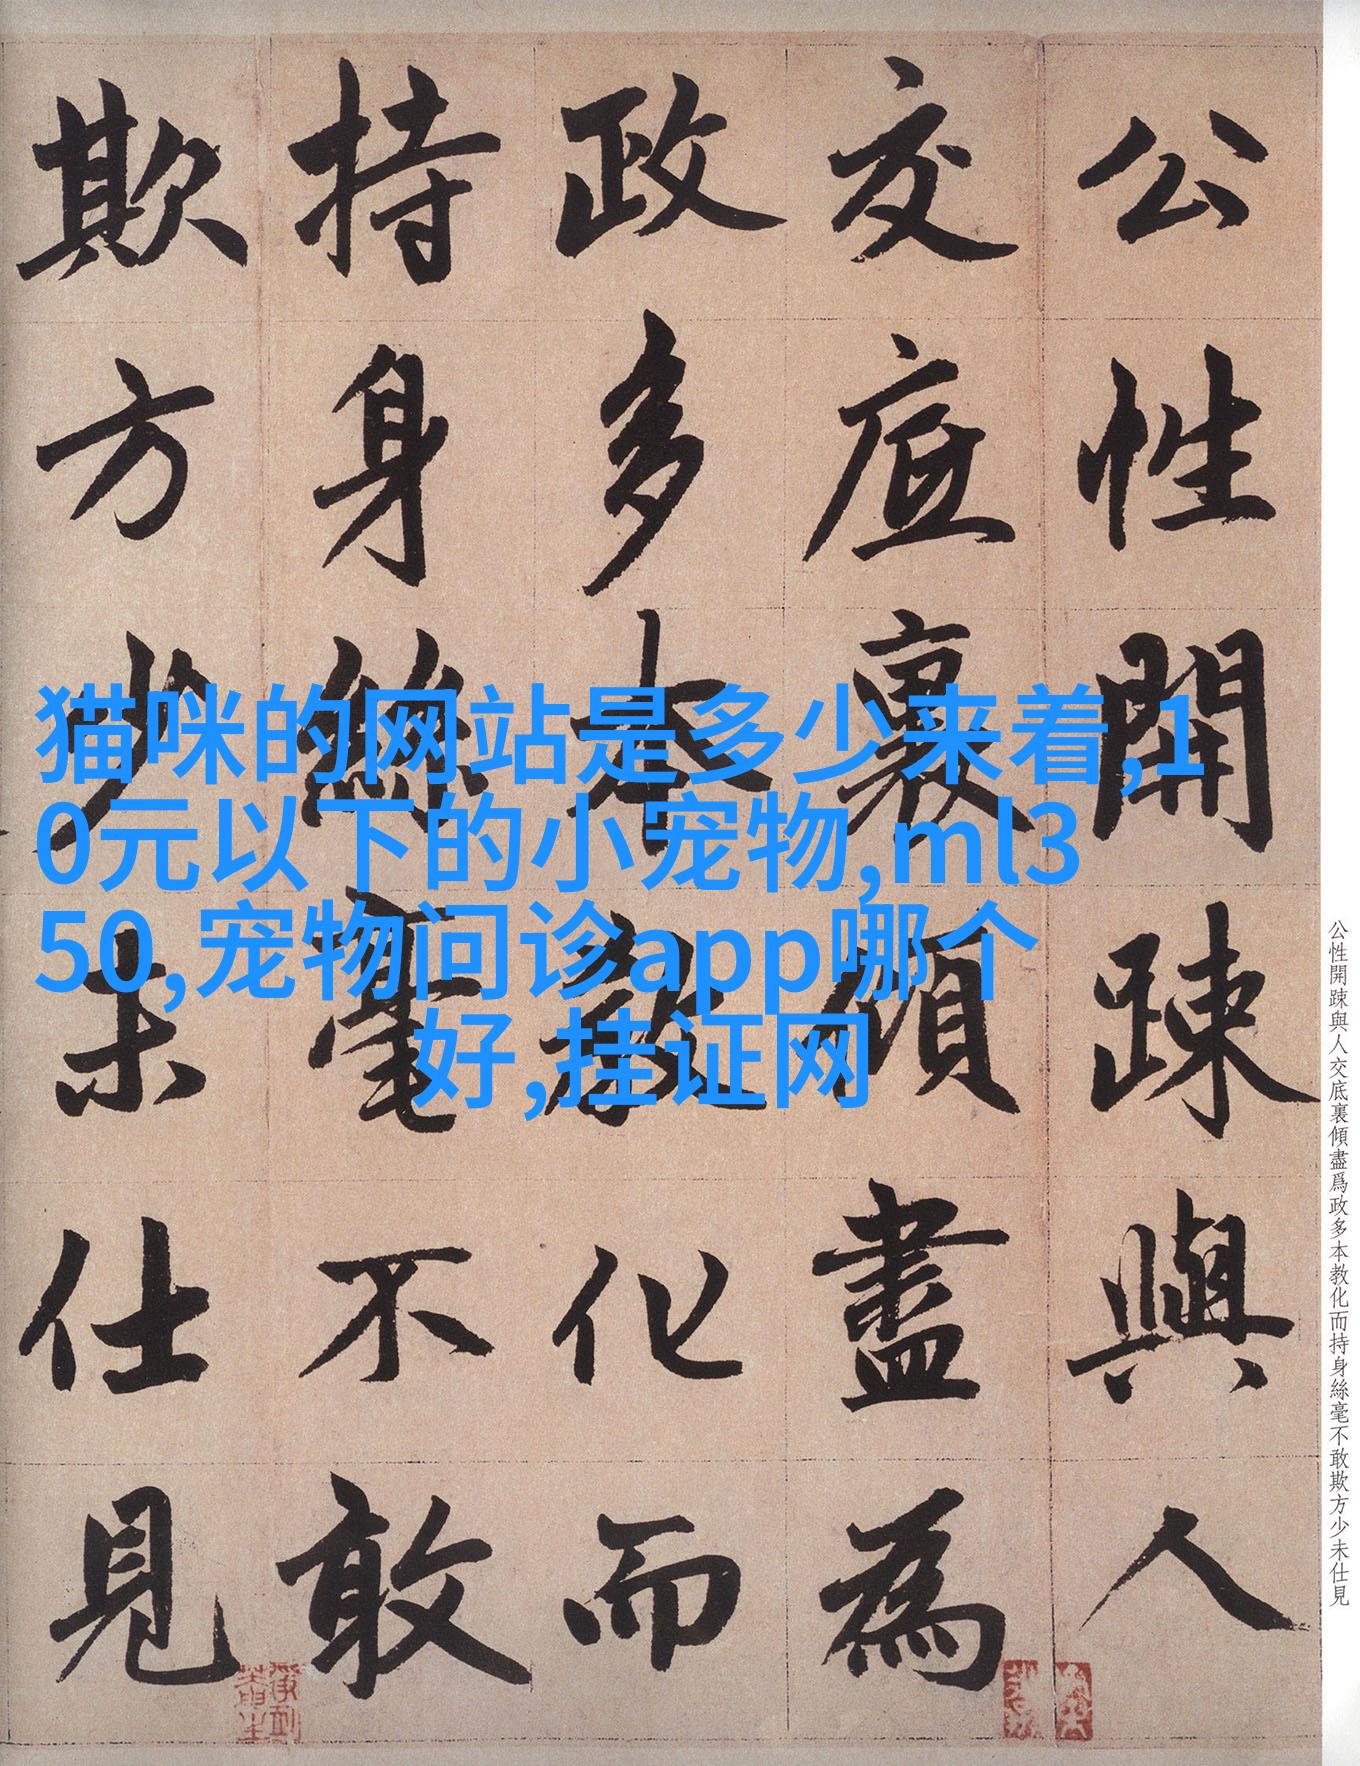 公性開踈與人
交底裏傾盡為
政多本教化而
持身絲毫不敢
欺方少未仕見
猫咪的网站是多少来着,1
0元以下的小宠物,ml3
50,宠物问诊app哪个
好,挂证网
公性開踈與人交底裏傾盡爲政多本教化而持身絲毫不敢欺方少未仕見